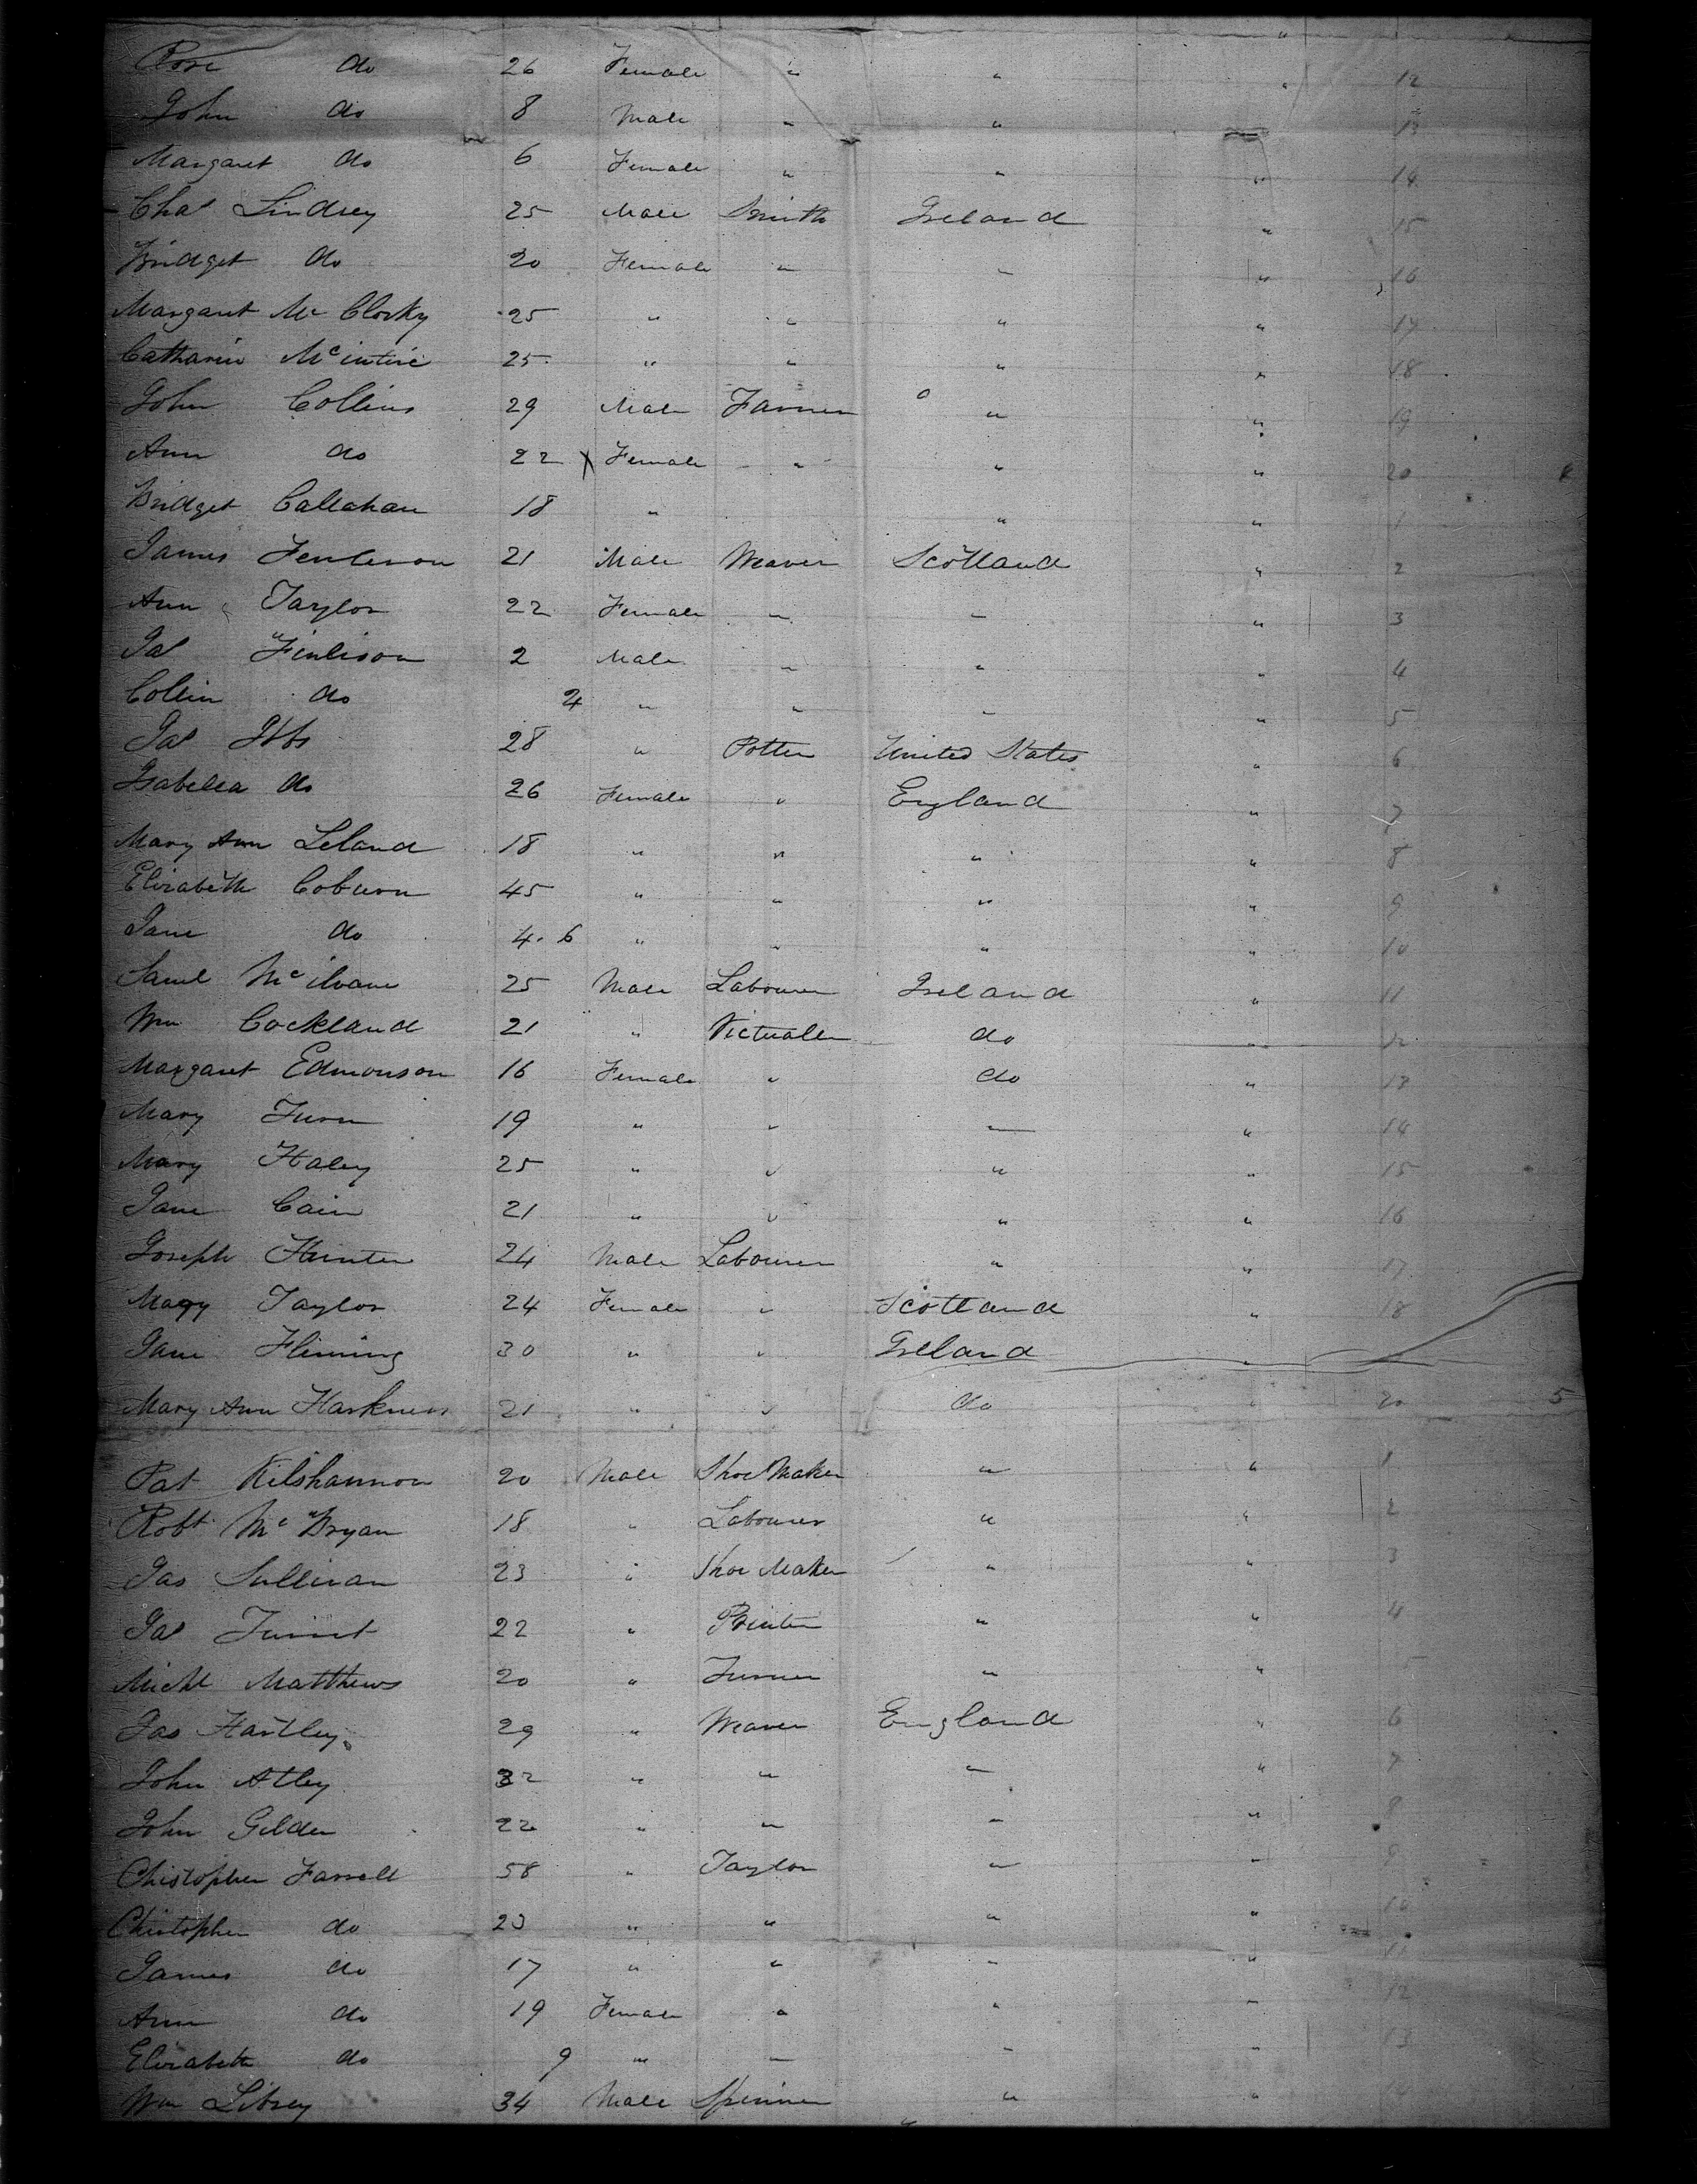 Rose do 26 Female " " " 12
John do 8 Male " " 13
Margaret do 6 Female " " " 14
Chas Lindsey 25 Male Smith Ireland " 15
Bridget do 20 Female " " " 16
Margaret Mc Closky 25 " " " " 17
Catharin Mcintire 25 " " " " 18
John Collins 29 Male Farmer " " 19
Ann do 22 X Female " " " 20
Bridget Callahan 18 " " " 1
James Fenleson 21 Male Weaver Scotland " 2
Ann Taylor 22 Female " " " 3
Jas Finlison 2 Male " " " 4
Collin do 4 " " " " 5
Jas 28 " Potter United States " 6
Isabella do 26 Female " England " 7
Mary Ann Leland 18 " " " " 8
Elizabeth Coburn 45 " " " " 9
Jane do 4. 6 " " " " 10
Saml Mcilvane 25 Male Labourer Ireland " 11
Wm Cockland 21 " Victualler do " 12
Margaret Edmonson 16 Female " do " 13
Mary 19 " " " " 14
Mary Haley 25 " " " " 15
Jane Cain 21 " " " " 16
Joseph Hunter 24 Male Labourer " " 17
Mary Taylor 24 Female " Scotland " 18
Jane Fleming 30 " " Ireland "
Mary Ann Harkness 21 " " do " 20 5
Pat Kilshannon 20 Male Shoe Maker " " 1
Robt Mc Bryan 18 " Labourer " " 2
Jas Sullivan 23 " Shoe Maker " " 3
Jas 22 " Printer " " 4
Michl Matthews 20 " Turner " " 5
Jas Hartley 29 " Weaver England " 6
John Atley 32 " " " " 7
John Gilder 22 " " " " 8
Chistopher Farrell 58 " Taylor " " 9
Christopher do 23 " " " " 10
James do 17 " " " " 11
Ann do 19 Female " " " 12
Elizabeth do 9 " " " " 13
Wm 34 Male Spinner " " 14